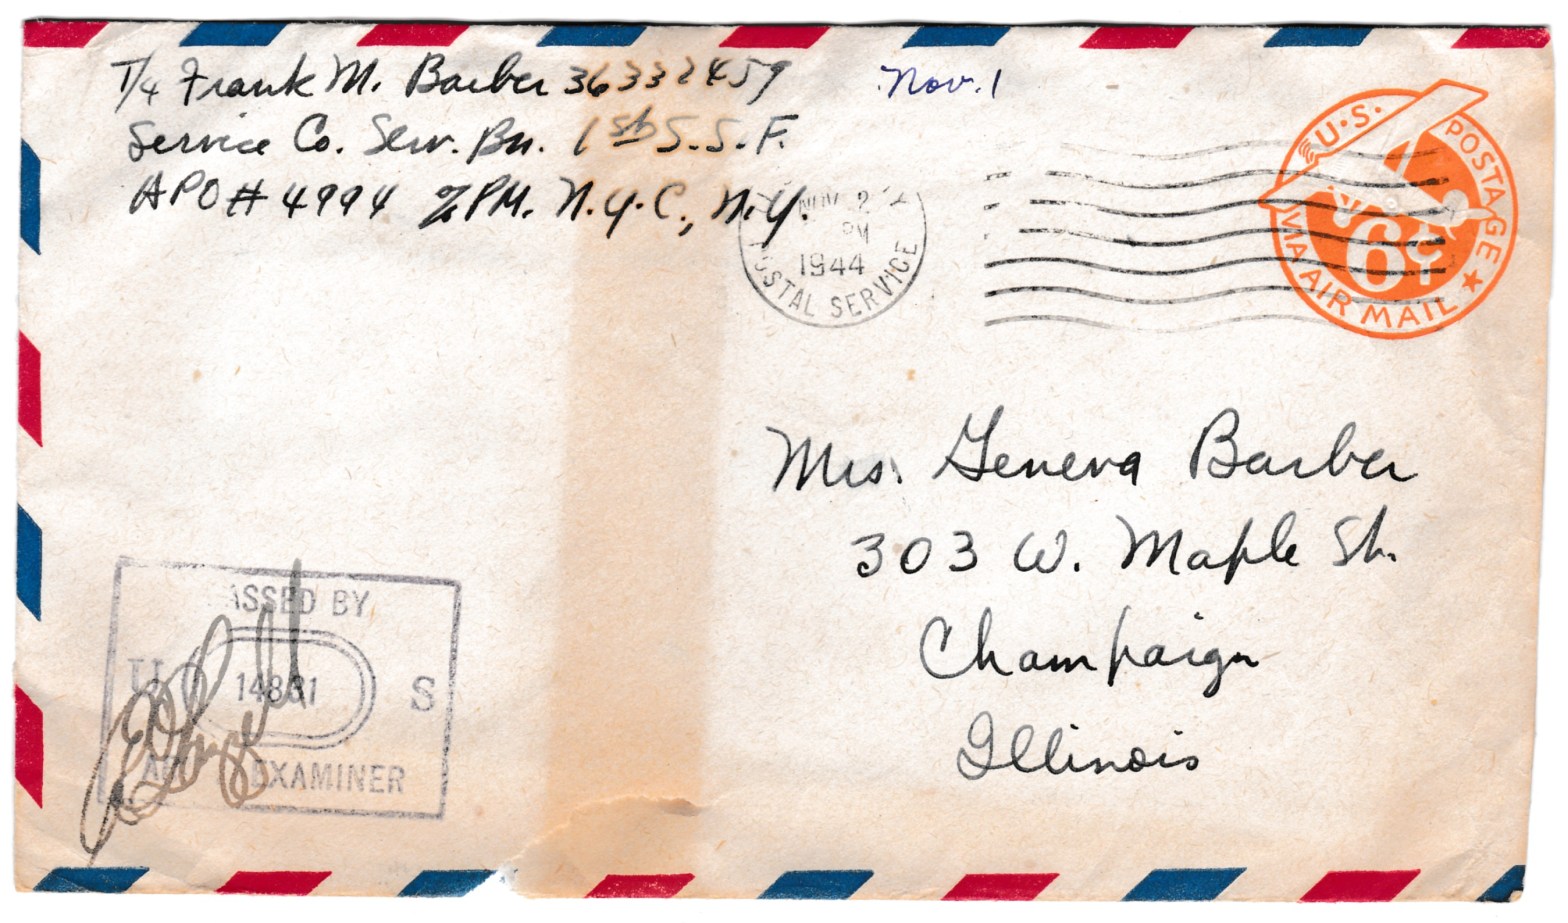 T/4 Frank M. Barber 36332459
Nov. 1
Service Co. Serv. Bn. 1st S.S.F.
APO # 4994 % PM. N.Y.C., N.Y.
NOV 2
PM
1944
POSTAL SERVICE
U.S. POSTAGE
6¢
VIA AIR MAIL
Mrs. Geneva Barber
303 W. Maple St.
Champaign
Illinois
PASSED BY
U S
ARMY EXAMINER